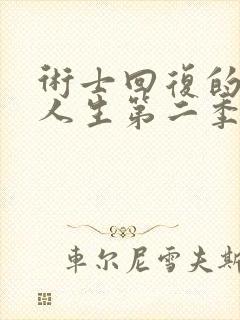 術士回復的
人生第二季
車尔尼雪夫斯